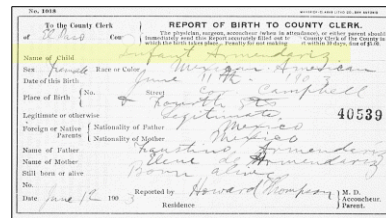 No. 1018
To the County Clerk
of El Paso Co
REPORT OF BIRTH TO COUNTY CLERK.
The physician, surgeon, accoucheur (when in attendance), or either parent should
immediately send this report accurately filled out to County Clerk of the County in
which the birth takes place. Penalty for not making it within 30 days, fine of $5.00.
Name of Child Infant Armendariz
Sex Female Race or Color Mexican American
Date of this Birth. June 11th. 1903
Place of Birth No. Street Cor Campbell
& Fourth Sts
Legitimate or otherwise Legitimate.
40539
Foreign or Native Parents Nationality of Father Mexico
Nationality of Mother Mexico
Name of Father Faustino Armendariz
Name of Mother de Armendariz
Still born or alive Born alive
No.
Date June 12 1903 Reported by Howard Thompson M. D.
Accoucheur.
Residence Parent.